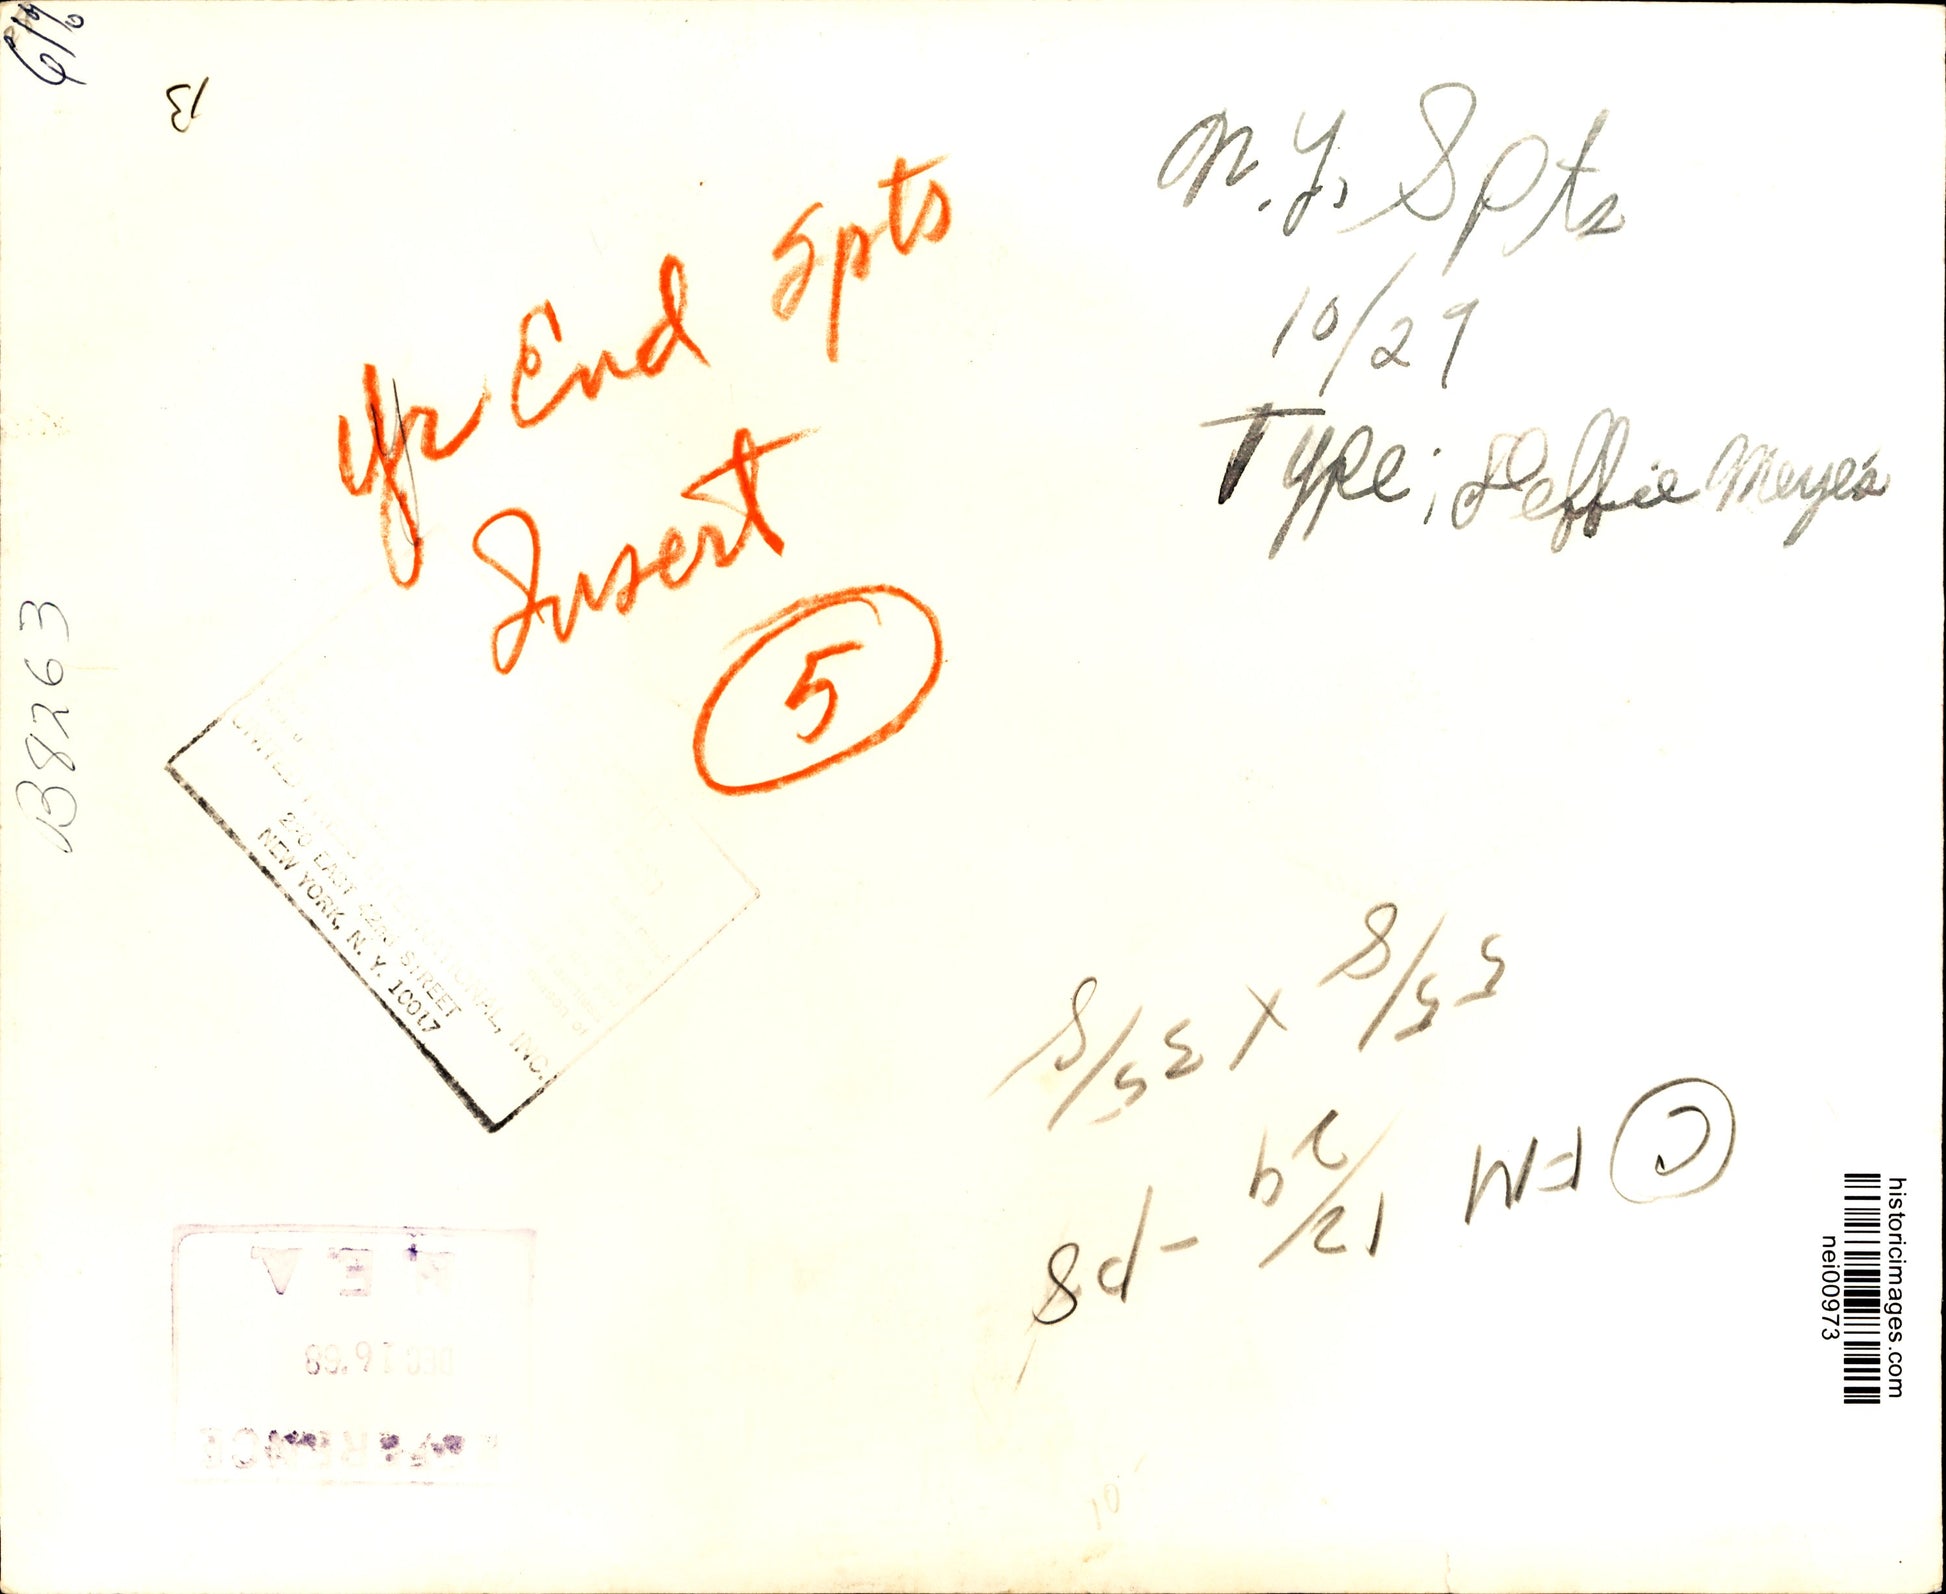 13
N.Y. Spts
10/29
Type; Debbie Meyers
Yr End Spts
Insert
5
B8263
UNITED PRESS INTERNATIONAL, INC.
220 EAST 42ND STREET
NEW YORK, N. Y. 10017
5 5/8 x 35/8
C FM 12/29 - p8
N.E.A
DEC 16 '68
REFERENCE
historicimages.com
nei00973